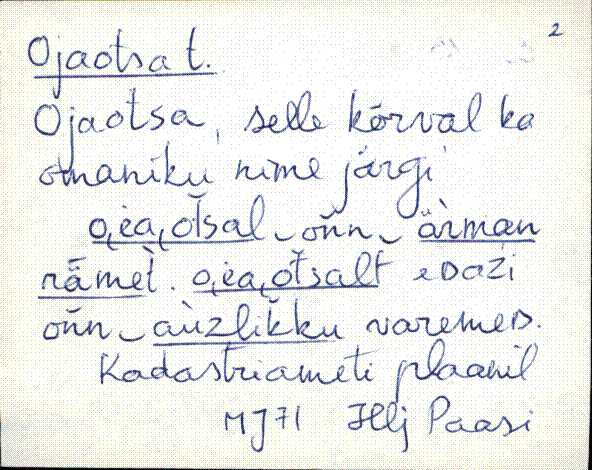 2
Ojaotsa t.
Ojaotsa, selle kõrval ka
omaniku nime järgi
o̬i̭a̬otsal on̆n ärman
rāmet̀. o̬i̭a̬otsalt eDaźi
on̆n aùzlik̆ku varemeD.
Kadastriameti plaanil
MJ71 Hlj Paasi